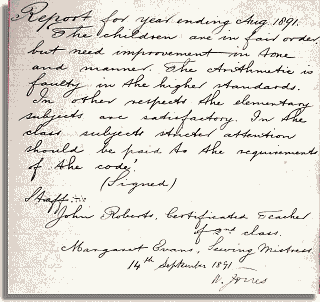 Report for year ending Aug 1891.
The children are in fair order,
but need improvement in tone
and manner. The Arithmetic is
faulty in the higher standards.
In other respects the elementary
subjects are satisfactory. In the
class subjects stricter attention
should be paid to the requirements
of the code'
(Signed)
Staff:-
John Roberts, Certificated Teacher
of 2nd class.
Margaret Evans, Sewing Mistress.
14th September 1891
Jones